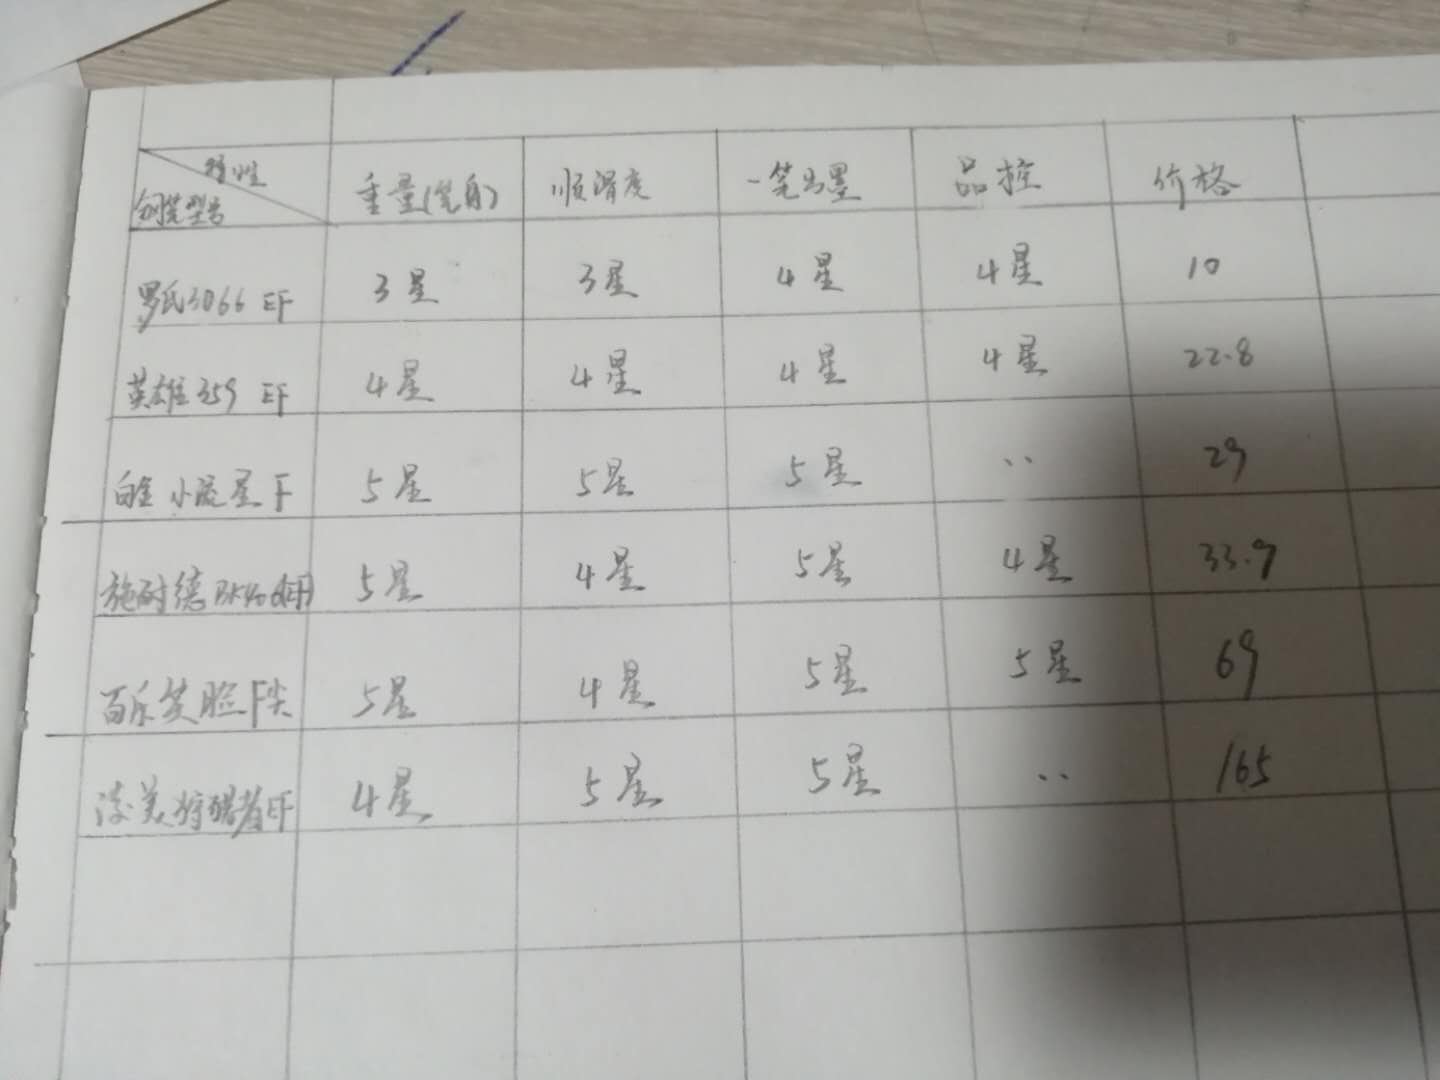 特性
钢笔型号 重量(笔身) 顺滑度 一笔出墨 品控 价格
罗氏3066 EF 3星 3星 4星 4星 10
英雄359 EF 4星 4星 4星 4星 22.8
白金 小流星 F 5星 5星 5星 .. 29
施耐德BK406(EF) 5星 4星 5星 4星 33.9
百乐笑脸F尖 5星 4星 5星 5星 69
凌美狩猎者EF 4星 5星 5星 .. 165